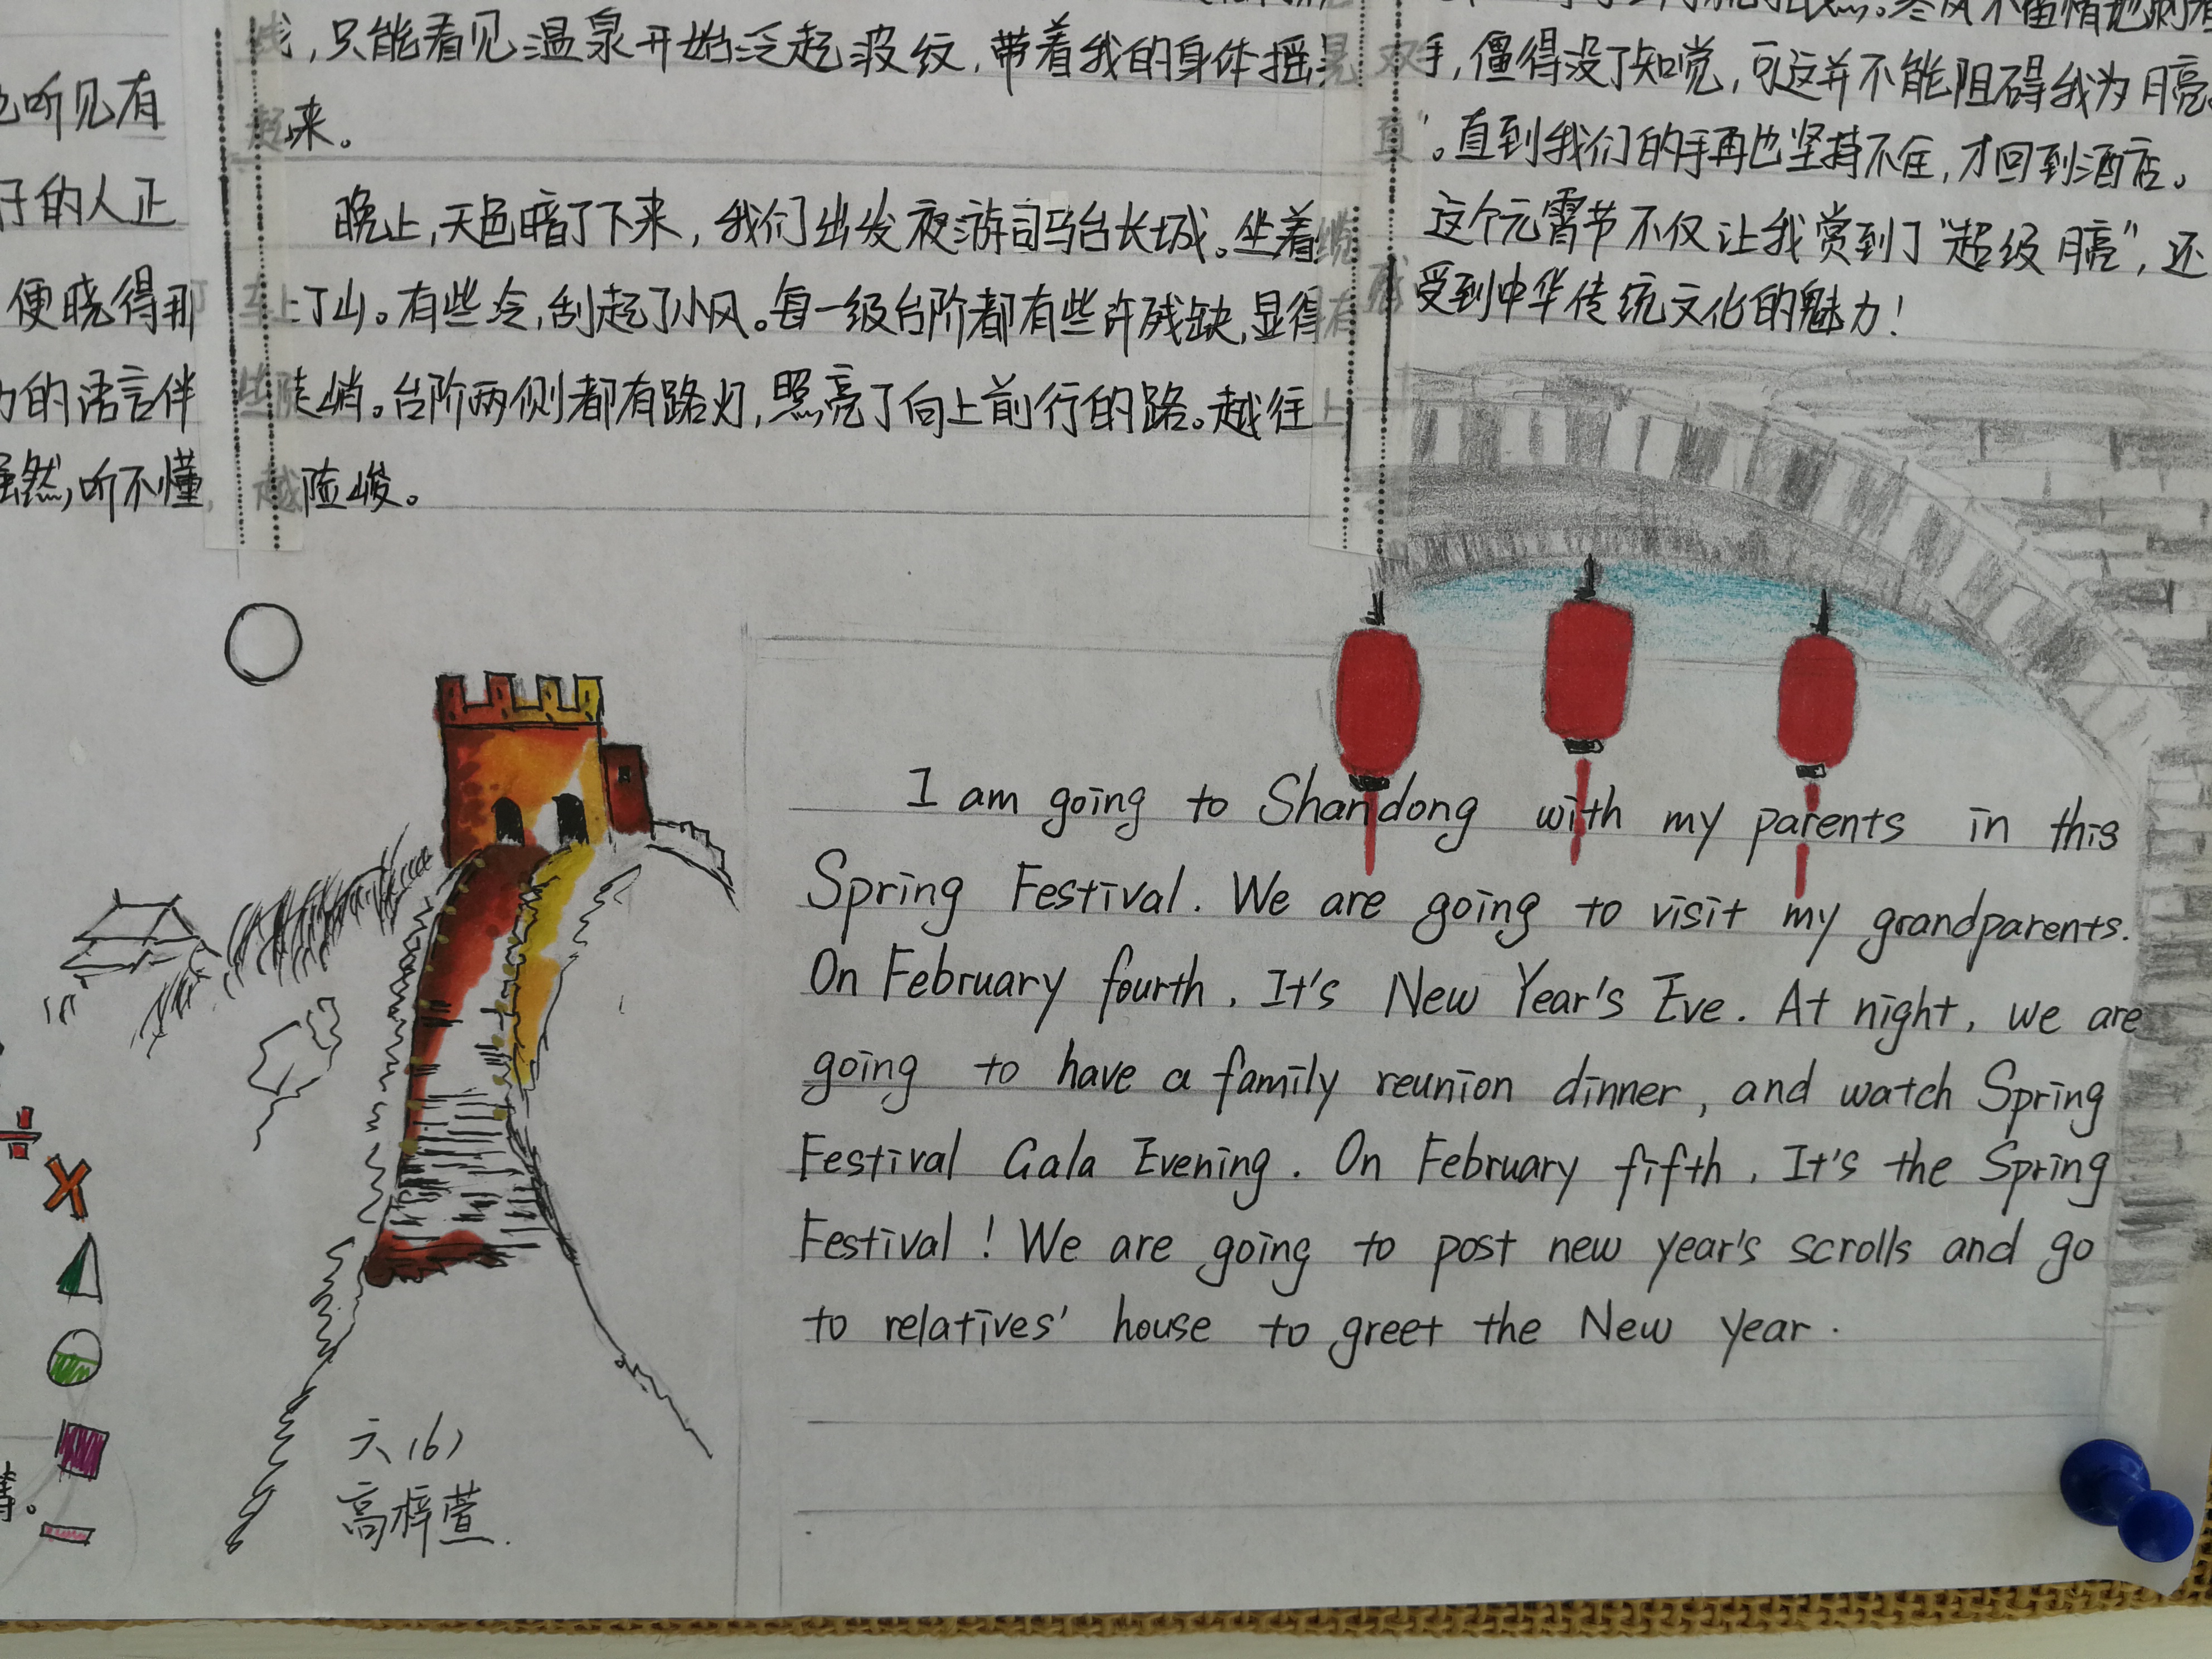 也听见有
子的人正
便晓得那
的语言伴
虽然,听不懂,
线,只能看见温泉开始泛起波纹,带着我的身体摇晃
起来。
晚上,天色暗了下来,我们出发夜游司马台长城。坐着缆
车上了山。有些冷,刮起了小风。每一级台阶都有些许残缺,显得有
些陡峭。台阶两侧都有路灯,照亮了向上前行的路。越往上,
越险峻。
双手,僵得没了知觉,可这并不能阻碍我为月亮
"。直到我们的手再也坚持不住,才回到酒店。
这个元宵节不仅让我赏到了"超级月亮",还
感受到中华传统文化的魅力!
I am going to Shandong with my parents in this
Spring Festival. We are going to visit my grandparents.
On February fourth, It's New Year's Eve. At night, we are
going to have a family reunion dinner, and watch Spring
Festival Gala Evening. On February fifth, It's the Spring
Festival! We are going to post new year's scrolls and go
to relatives' house to greet the New year.
六(6)
高梓萱.